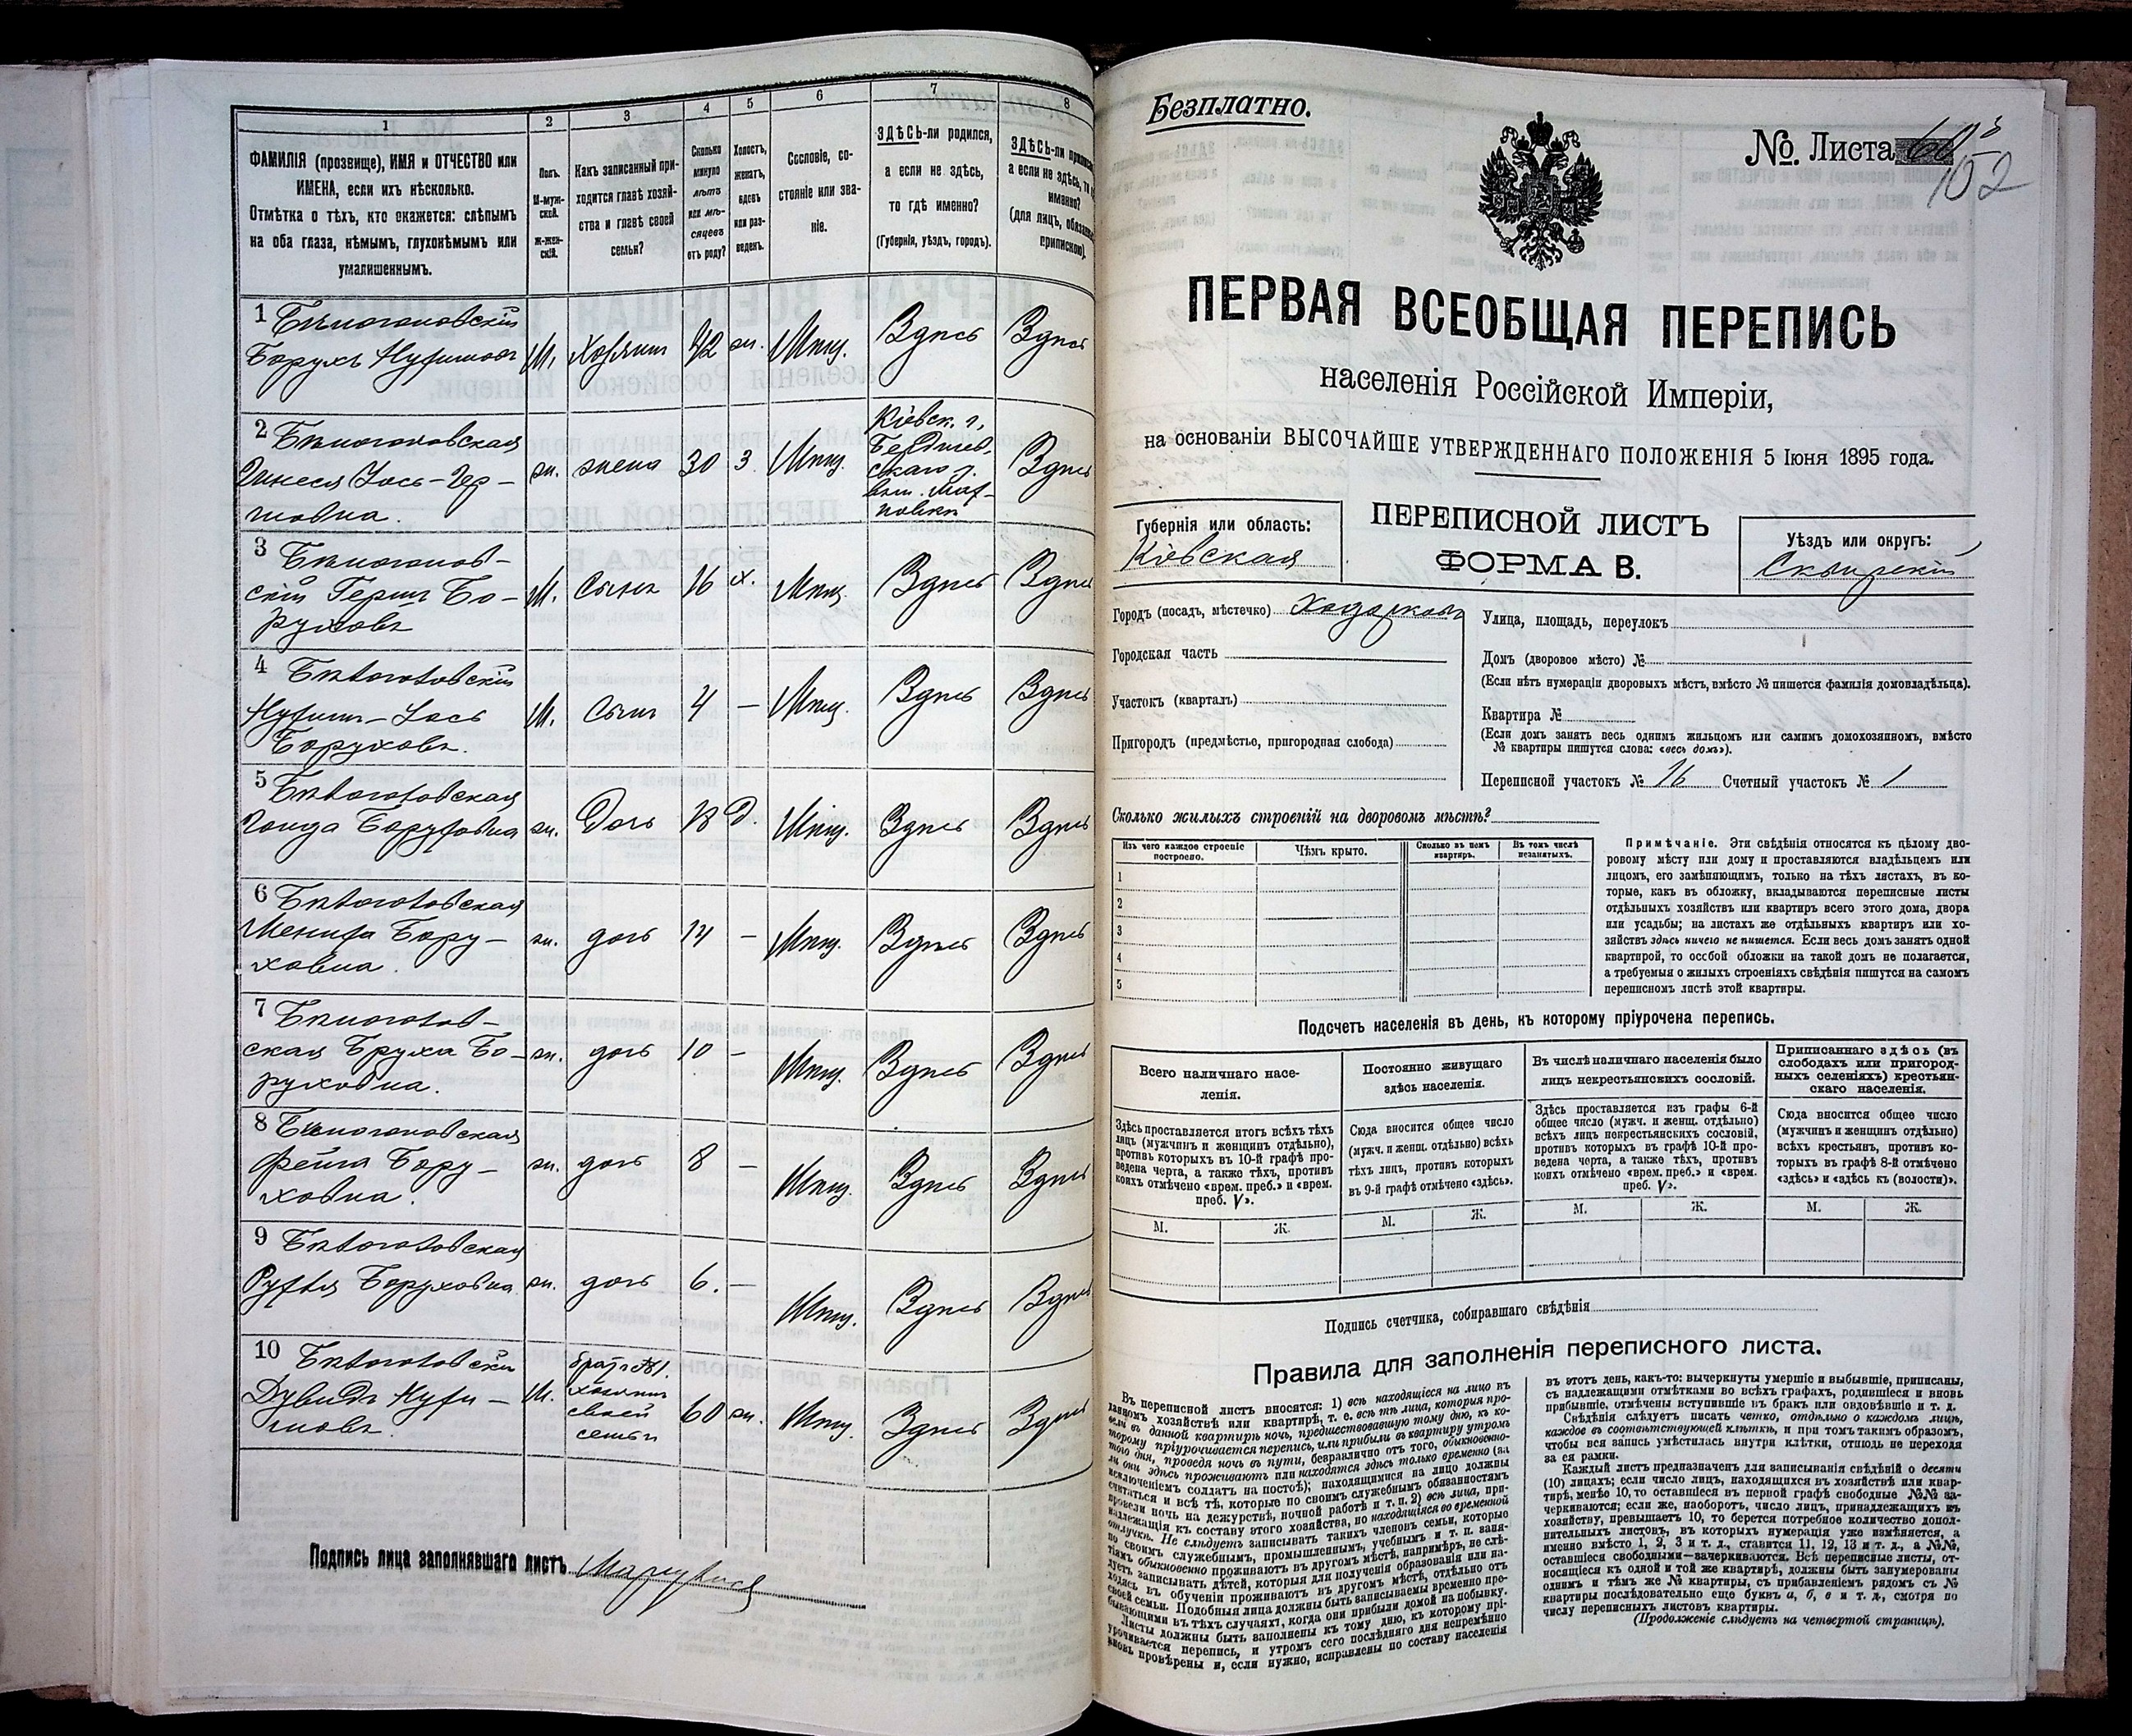 1
2
3
4
5
6
7
8
ФАМИЛІЯ (прозвище), ИМЯ и ОТЧЕСТВО или
ИМЕНА, если ихъ нѣсколько.
Отмѣтка о тѣхъ, кто окажется: слѣпымъ
на оба глаза, нѣмымъ, глухонѣмымъ или
умалишеннымъ.
Полъ.
М-муж-
ской.
Ж-жен-
скій.
Какъ записанный при-
ходится главѣ хозяй-
ства и главѣ своей
семьи?
Сколько
минуло
лѣтъ
или мѣ-
сяцевъ
отъ роду?
Холостъ,
женатъ,
вдовъ
или раз-
веденъ.
Сословіе, со-
стояніе или зва-
ніе.
ЗДѢСЬ-ли родился,
а если не здѣсь,
то гдѣ именно?
(Губернія, уѣздъ, городъ).
ЗДѢСЬ-ли
а если не здѣсь,
именно?
(для лицъ,
припискою).
1
М. 42 ж. Мѣщ. Здѣсь Здѣсь
2
ж. жена 30 З. Мѣщ. Кіевск. г.,
Бердичев-
скаго у.
Здѣсь
3
скій Герш Бо-
руховъ
М. Сынъ 16 х. Мѣщ. Здѣсь Здѣсь
4
Боруховъ.
М. Сынъ 4 — Мѣщ. Здѣсь Здѣсь
5
Боруховна ж. Дочь 18 д. Мѣщ. Здѣсь Здѣсь
6
Бору-
ховна.
ж. дочь 14 — Мѣщ. Здѣсь Здѣсь
7
ская Бруха Бо-
руховна.
ж. дочь 10 — Мѣщ. Здѣсь Здѣсь
8
Фейга Бору-
ховна.
ж. дочь 8 — Мѣщ. Здѣсь Здѣсь
9
Рухля Боруховна ж. дочь 6. — Мѣщ. Здѣсь Здѣсь
10
М. братъ №1.
своей
семьи
60 ж. Мѣщ. Здѣсь Здѣсь
Подпись лица заполнявшаго листъ
Безплатно.
№. Листа
152
ПЕРВАЯ ВСЕОБЩАЯ ПЕРЕПИСЬ
населенія Россійской Имперіи,
на основаніи ВЫСОЧАЙШЕ УТВЕРЖДЕННАГО ПОЛОЖЕНІЯ 5 Іюня 1895 года.
Губернія или область:
Кіевская
ПЕРЕПИСНОЙ ЛИСТЪ
ФОРМА В.
Уѣздъ или округъ:
Сквирскій
Городъ (посадъ, мѣстечко) Ходорковъ
Городская часть
Участок (кварталъ)
Пригородъ (предмѣстье, пригородная слобода)
Улица, площадь, переулокъ
Домъ (дворовое мѣсто) №
(Если нѣтъ нумераціи дворовыхъ мѣстъ, вмѣсто № пишется фамилія домовладѣльца).
Квартира №
(Если домъ занятъ весь однимъ жильцомъ или самимъ домохозяиномъ, вмѣсто
№ квартиры пишутся слова: «весь домъ»).
Переписной участокъ № 16 Счетный участокъ № 1
Сколько жилыхъ строеній на дворовомъ мѣстѣ?
Изъ чего каждое строеніе
построено.
Чѣмъ крыто.
Сколько въ немъ
квартиръ.
Въ томъ числѣ
незанятыхъ.
1
2
3
4
5
Примѣчаніе. Эти свѣдѣнія относятся къ цѣлому дво-
ровому мѣсту или дому и проставляются владѣльцемъ или
лицомъ, его замѣняющимъ, только на тѣхъ листахъ, въ ко-
торые, какъ въ обложку, вкладываются переписные листы
отдѣльныхъ хозяйствъ или квартиръ всего этого дома, двора
или усадьбы; на листахъ же отдѣльныхъ квартиръ или хо-
зяйствъ здѣсь ничего не пишется. Если весь домъ занятъ одной
квартирой, то особой обложки на такой домъ не полагается,
а требуемыя о жилыхъ строеніяхъ свѣдѣнія пишутся на самомъ
переписномъ листѣ этой квартиры.
Подсчетъ населенія въ день, къ которому пріурочена перепись.
Всего наличнаго насе-
ленія.
Постоянно живущаго
здѣсь населенія.
Въ числѣ наличнаго населенія было
лицъ некрестьянскихъ сословій.
Приписаннаго здѣсь (въ
слободахъ или пригород-
ныхъ селеніяхъ) крестьян-
скаго населенія.
Здѣсь проставляется итогъ всѣхъ тѣхъ
лицъ (мужчинъ и женщинъ отдѣльно),
противъ которыхъ въ 10-й графѣ про-
ведена черта, а также тѣхъ, противъ
коихъ отмѣчено «врем. преб.» и «врем.
преб. V».
Сюда вносится общее число
(мужч. и женщ. отдѣльно) всѣхъ
тѣхъ лицъ, противъ которыхъ
въ 9-й графѣ отмѣчено «здѣсь».
Здѣсь проставляется изъ графы 6-й
общее число (мужч. и женщ. отдѣльно)
всѣхъ лицъ некрестьянскихъ сословій,
противъ которыхъ въ графѣ 10-й про-
ведена черта, а также тѣхъ, противъ
коихъ отмѣчено «врем. преб.» и «врем.
преб. V».
Сюда вносится общее число
(мужчинъ и женщинъ отдѣльно)
всѣхъ крестьянъ, противъ ко-
торыхъ въ графѣ 8-й отмѣчено
«здѣсь» и «здѣсь къ (волости)».
М. Ж. М. Ж. М. Ж. М. Ж.
Подпись счетчика, собиравшаго свѣдѣнія
Правила для заполненія переписного листа.
Въ переписной листъ вносятся: 1) всѣ находящіеся на лицо въ
данномъ хозяйствѣ или квартирѣ, т. е. всѣ тѣ лица, которыя про-
вели въ данной квартирѣ ночь, предшествовавшую тому дню, къ ко-
торому пріурочивается перепись, или прибыли въ квартиру утромъ
того дня, проведя ночь въ пути, безразлично отъ того, обыкновенно-
ли они здѣсь проживаютъ или находятся здѣсь только временно (за
исключеніемъ солдатъ на постоѣ); находящимися на лицо должны
считаться и всѣ тѣ, которые по своимъ служебнымъ обязанностямъ
провели ночь на дежурствѣ, ночной работѣ и т. п. 2) всѣ лица, при-
надлежащія къ составу этого хозяйства, но находящіяся во временной
отлучкѣ. Не слѣдуетъ записывать такихъ членовъ семьи, которые
по своимъ служебнымъ, промышленнымъ, учебнымъ и т. п. заня-
тіямъ обыкновенно проживаютъ въ другомъ мѣстѣ, напримѣръ, не слѣ-
дуетъ записывать дѣтей, которыя для полученія образованія или на-
ходясь въ обученіи проживаютъ въ другомъ мѣстѣ, отдѣльно отъ
своей семьи. Подобныя лица должны быть записываемы временно пре-
бывающими въ тѣхъ случаяхъ, когда они прибыли домой на побывку.
Листы должны быть заполнены къ тому дню, къ которому прі-
урочивается перепись, и утромъ сего послѣдняго дня непремѣнно
вновь провѣрены и, если нужно, исправлены по составу населенія
въ этотъ день, какъ-то: вычеркнуты умершіе и выбывшіе, приписаны,
съ надлежащими отмѣтками во всѣхъ графахъ, родившіеся и вновь
прибывшіе, отмѣчены вступившіе въ бракъ или овдовѣвшіе и т. д.
Свѣдѣнія слѣдуетъ писать четко, отдѣльно о каждомъ лицѣ,
каждое въ соотвѣтствующей клѣткѣ, и при томъ такимъ образомъ,
чтобы вся запись умѣстилась внутри клѣтки, отнюдь не переходя
за ея рамки.
Каждый листъ предназначенъ для записыванія свѣдѣній о десяти
(10) лицахъ; если число лицъ, находящихся въ хозяйствѣ или квар-
тирѣ, менѣе 10, то оставшіеся въ первой графѣ свободные №№ за-
черкиваются; если же, наоборотъ, число лицъ, принадлежащихъ къ
хозяйству, превышаетъ 10, то берется потребное количество допол-
нительныхъ листовъ, въ которыхъ нумерація уже измѣняется, а
именно вмѣсто 1, 2, 3 и т. д., ставится 11, 12, 13 и т. д., а №№,
оставшіеся свободными—зачеркиваются. Всѣ переписные листы, от-
носящіеся къ одной и той же квартирѣ, должны быть занумерованы
однимъ и тѣмъ же № квартиры, съ прибавленіемъ рядомъ съ №
квартиры послѣдовательно еще буквъ а, б, в и т. д., смотря по
числу переписныхъ листовъ квартиры.
(Продолженіе слѣдуетъ на четвертой страницѣ).